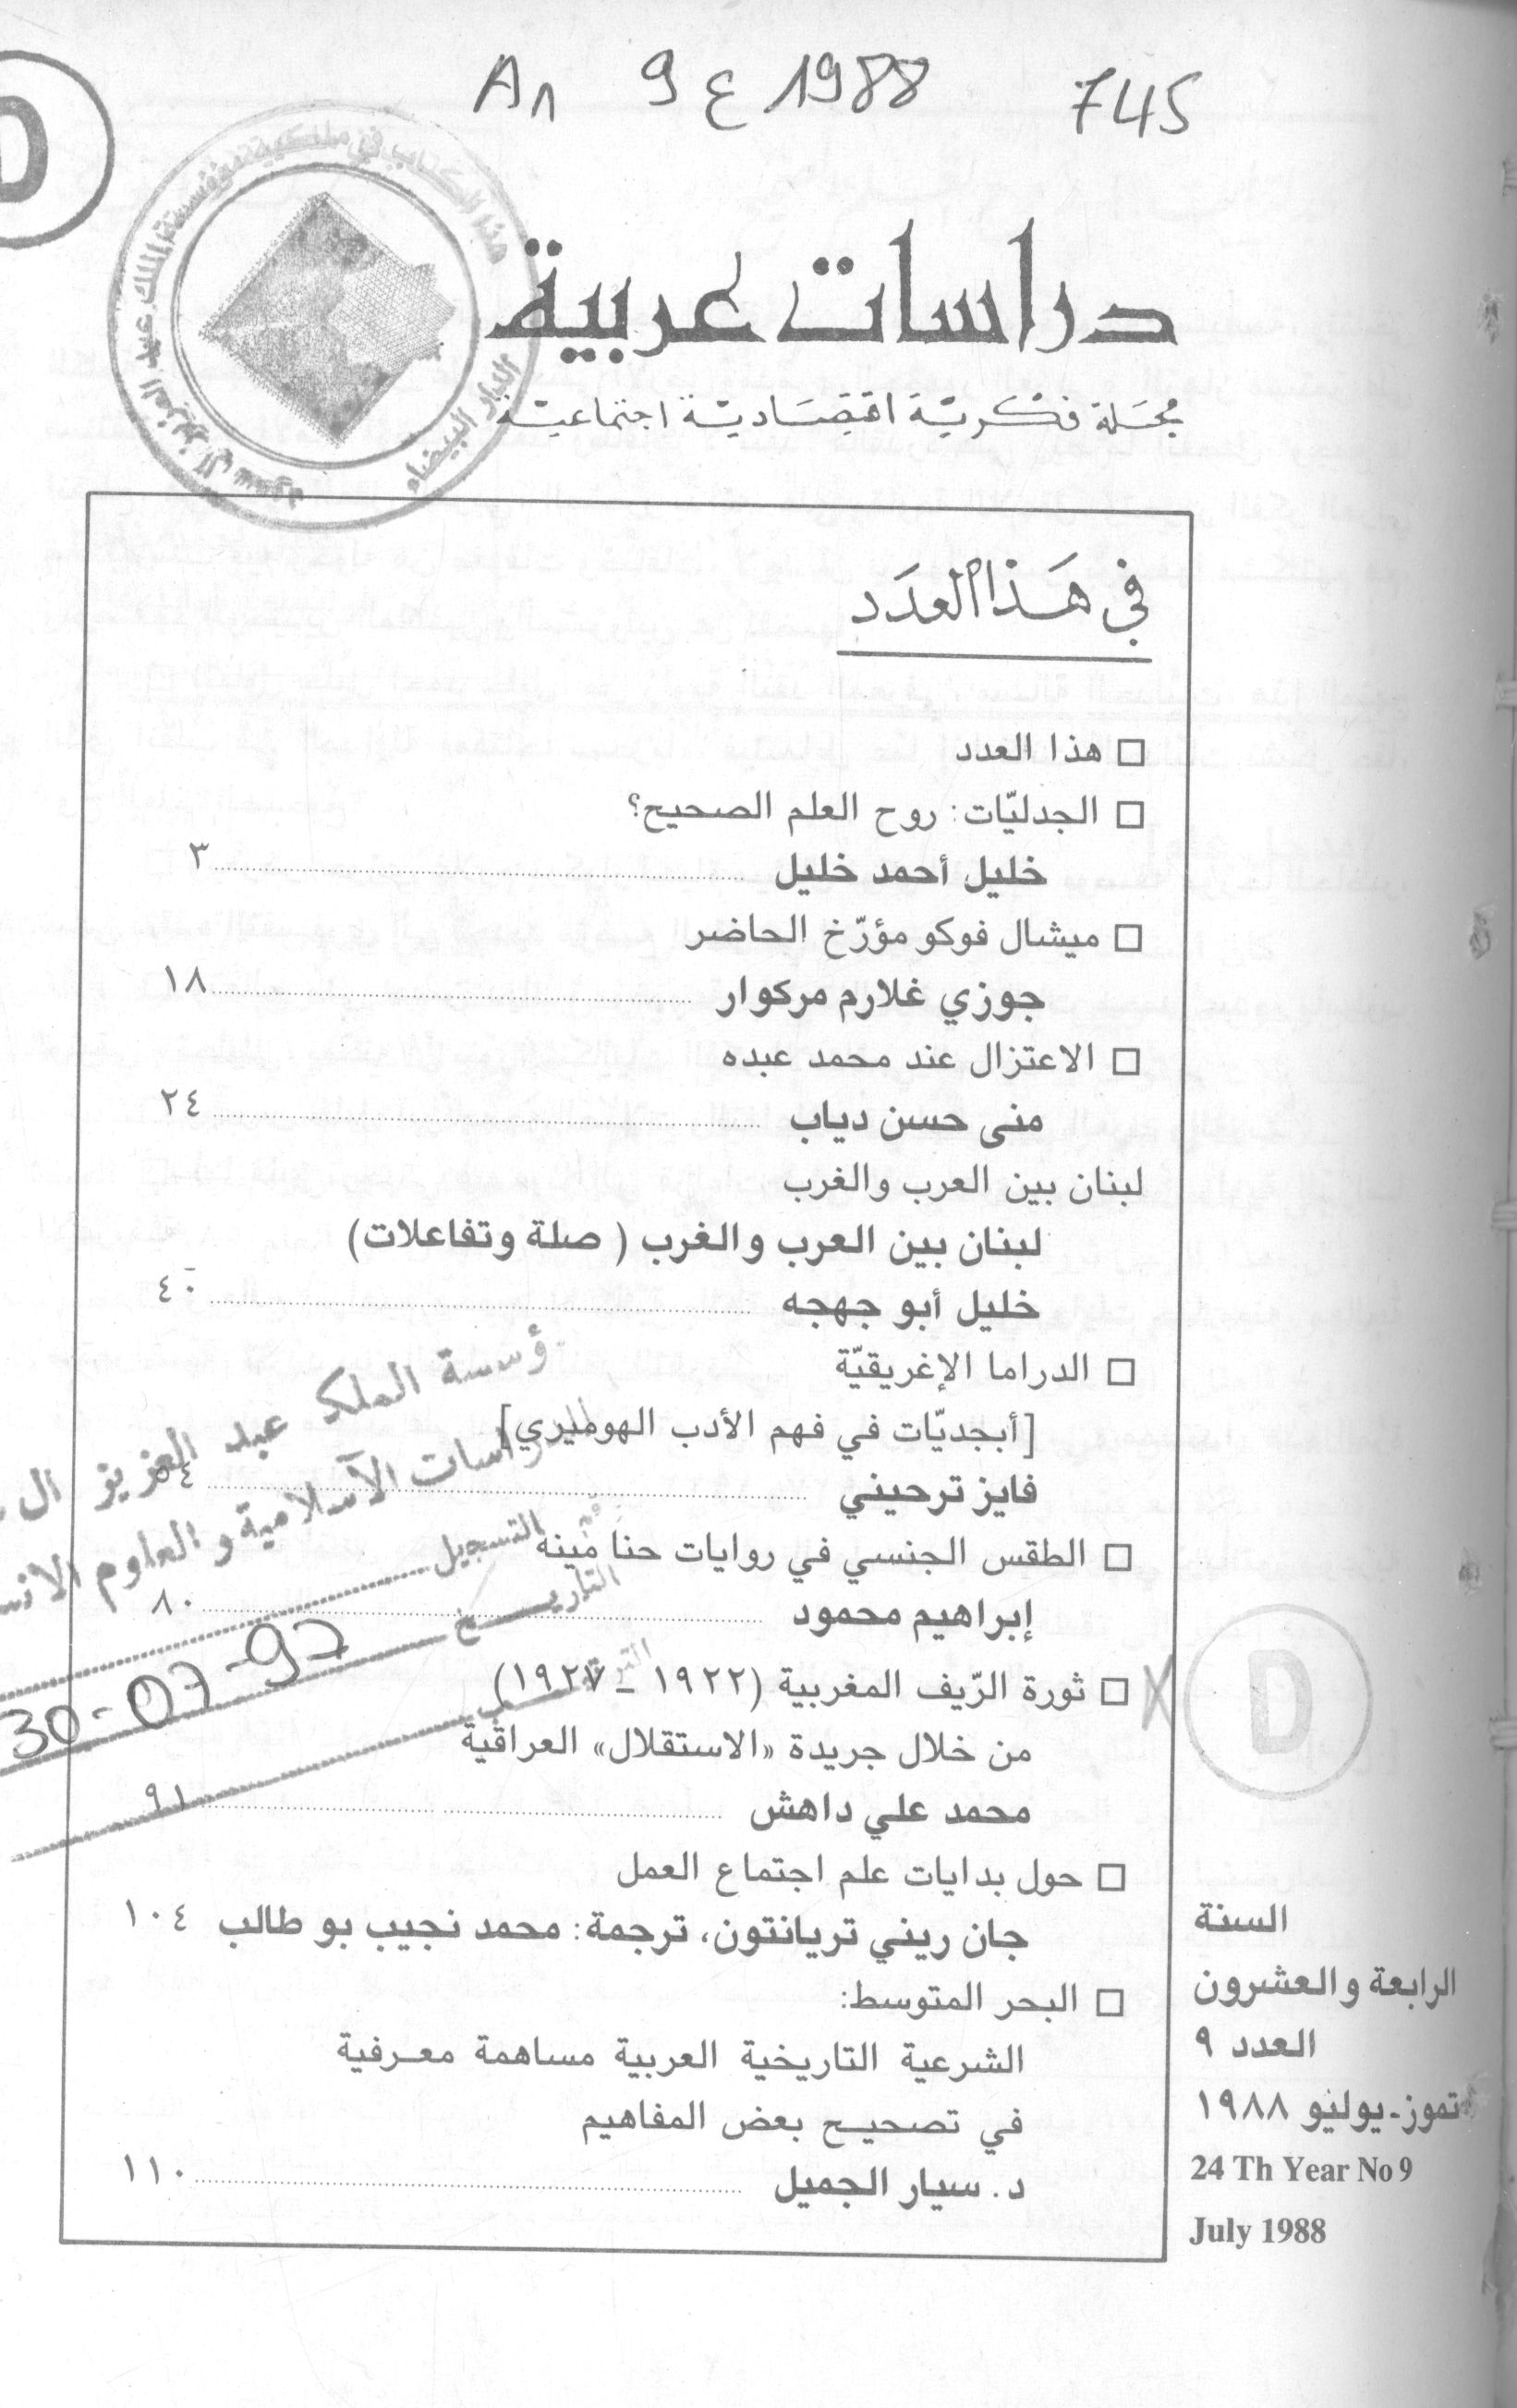 An 9 ع 1988 745
D
هذا الكتاب في ملكية مؤسسة الملك عبد العزيز آل سعود
الدار البيضاء
دراسات عربية
مجلة فكريّة اقتصَاديّة اجتماعيّة
في هَذا العدَد
□ هذا العدد
□ الجدليّات: روح العلم الصحيح؟
خليل أحمد خليل ٣
□ ميشال فوكو مؤرّخ الحاضر
جوزي غلارم مركوار ١٨
□ الاعتزال عند محمد عبده
منى حسن دياب ٢٤
لبنان بين العرب والغرب
لبنان بين العرب والغرب (صلة وتفاعلات)
خليل أبو جهجه ٤٠
□ الدراما الإغريقيّة
[أبجديّات في فهم الأدب الهوميري]
فايز ترحيني ٥٤
□ الطقس الجنسي في روايات حنا مينه
إبراهيم محمود ٨٠
□ ثورة الرّيف المغربية (١٩٢٢ - ١٩٢٧)
من خلال جريدة «الاستقلال» العراقية
محمد علي داهش ٩١
□ حول بدايات علم اجتماع العمل
جان ريني تريانتون، ترجمة: محمد نجيب بو طالب ١٠٤
□ البحر المتوسط:
الشرعية التاريخية العربية مساهمة معرفية
في تصحيح بعض المفاهيم
د. سيار الجميل ١١٠
ؤسسة الملك عبد العزيز ال
للدراسات الآسلامية و العلوم الانس
التسجيل
التاريخ
30-07-92
D
السنة
الرابعة والعشرون
العدد ٩
تموز-يوليو ١٩٨٨
24 Th Year No 9
July 1988